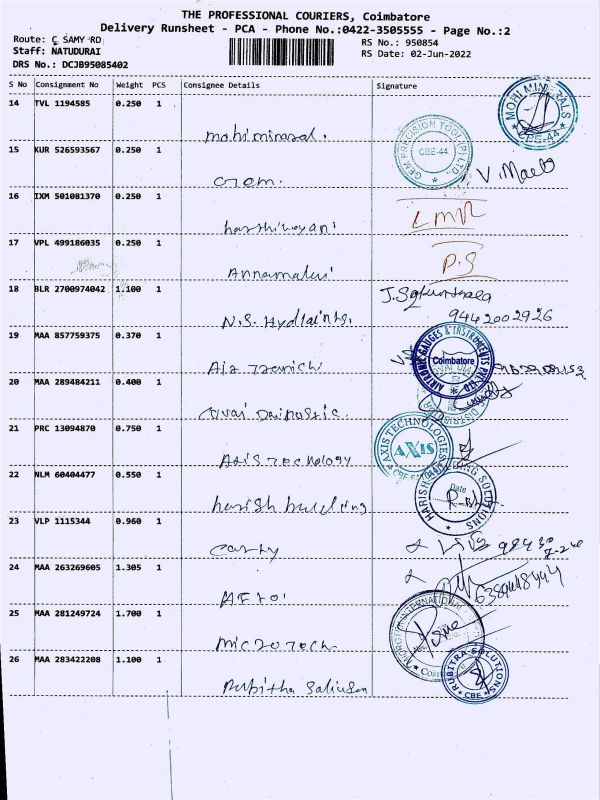 THE PROFESSIONAL COURIERS, Coimbatore
Delivery Runsheet - PCA - Phone No.:0422-3505555 - Page No.:2
Route: C SAMY RD
RS No.: 950854
Staff: NATUDURAI
RS Date: 02-Jun-2022
DRS No.: DCJB95085402
S No Consignment No Weight PCS Consignee Details Signature
14 TVL 1194585 0.250 1
mohimineral.
MOHI MINERALS
CBE-44
15 KUR 526593567 0.250 1
Gem.
GEM PRECISION TOOL (P) LTD.
CBE-44
V. 
16 IXM 501081370 0.250 1
LMR
17 VPL 499186035 0.250 1
Annamalai
P.S
18 BLR 2700974042 1.100 1
N.S. 
J. 
9442002926
19 MAA 857759375 0.370 1
AIRTRONIC GAUGES & INSTRUMENTS PVT LTD
Coimbatore
20 MAA 289484211 0.400 1
21 PRC 13094870 0.750 1
Axis Technology
AXIS TECHNOLOGIES
AXIS
22 NLM 60404477 0.550 1
harish building
HARISH BUILDING SOLUTIONS
Date
23 VLP 1115344 0.960 1
24 MAA 263269605 1.305 1
25 MAA 281249724 1.700 1
Microtech
26 MAA 283422208 1.100 1
Rubitha Solution
RUBITRA SOLUTIONS
CBE